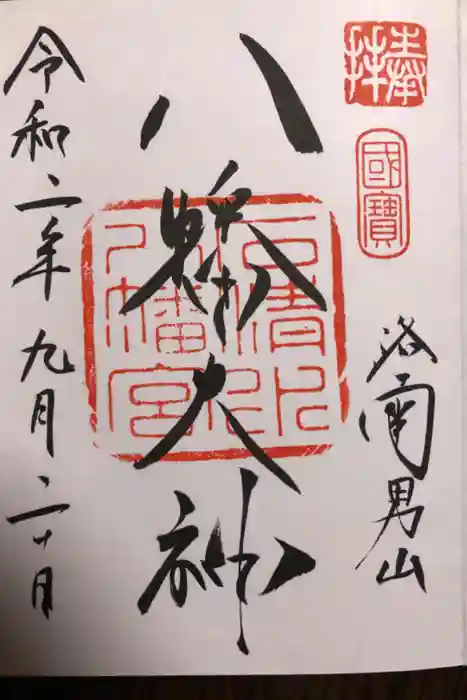 奉拝
國寶
洛南男山
八幡大神
石清水
八幡宮
令和二年九月二十日